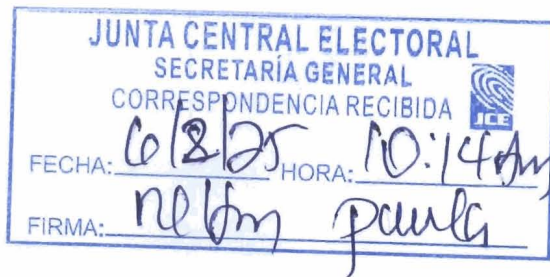 JUNTA CENTRAL ELECTORAL
SECRETARÍA GENERAL
CORRESPONDENCIA RECIBIDA
JCE
FECHA: 6/8/25 HORA: 10:14 Am
FIRMA: paula